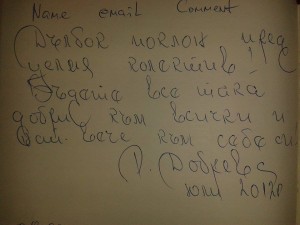 Name email Comment
Дълбок поклон пред
целия колектив!
Бъдете все така
добри към всички и
към себе си
Р. Добрева
юни 2012г